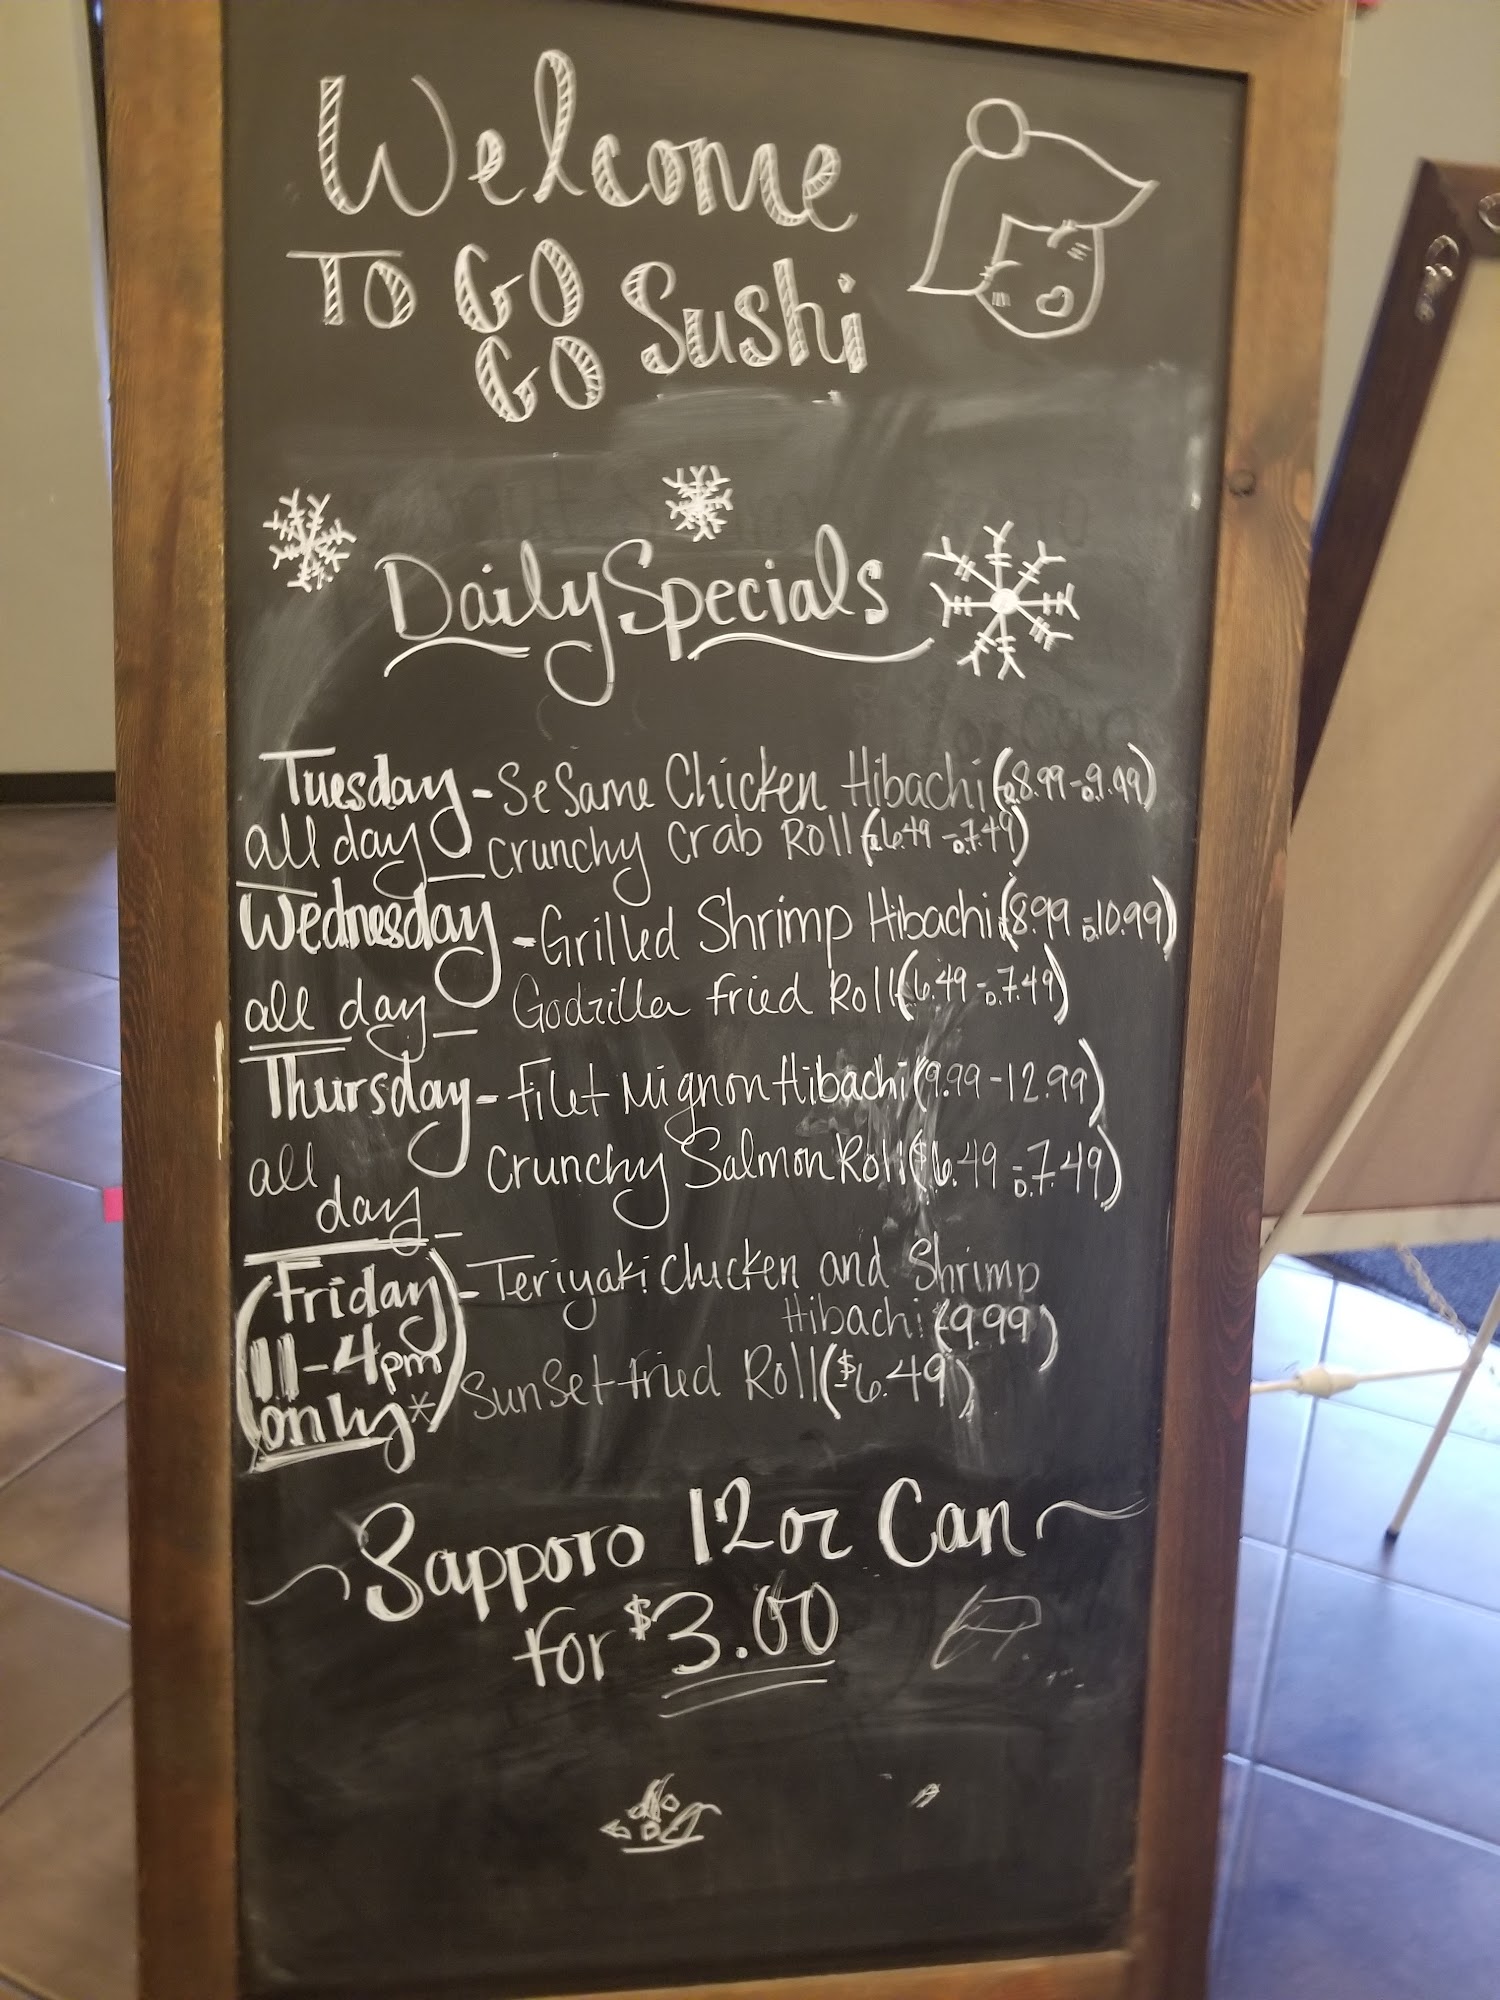 Welcome
TO GO GO Sushi
Daily Specials
Tuesday - Sesame Chicken Hibachi (8.99 - 9.99)
all day - Crunchy Crab Roll (6.49 - 7.49)
Wednesday - Grilled Shrimp Hibachi (8.99 - 10.99)
all day - Godzilla Fried Roll (6.49 - 7.49)
Thursday - Filet Mignon Hibachi (9.99 - 12.99)
all day - Crunchy Salmon Roll ($6.49 - 7.49)
(Friday - Teriyaki Chicken and Shrimp
Hibachi (9.99)
11-4pm
only*) Sunset Fried Roll ($6.49)
~ Sapporo 12oz Can ~
for $3.00